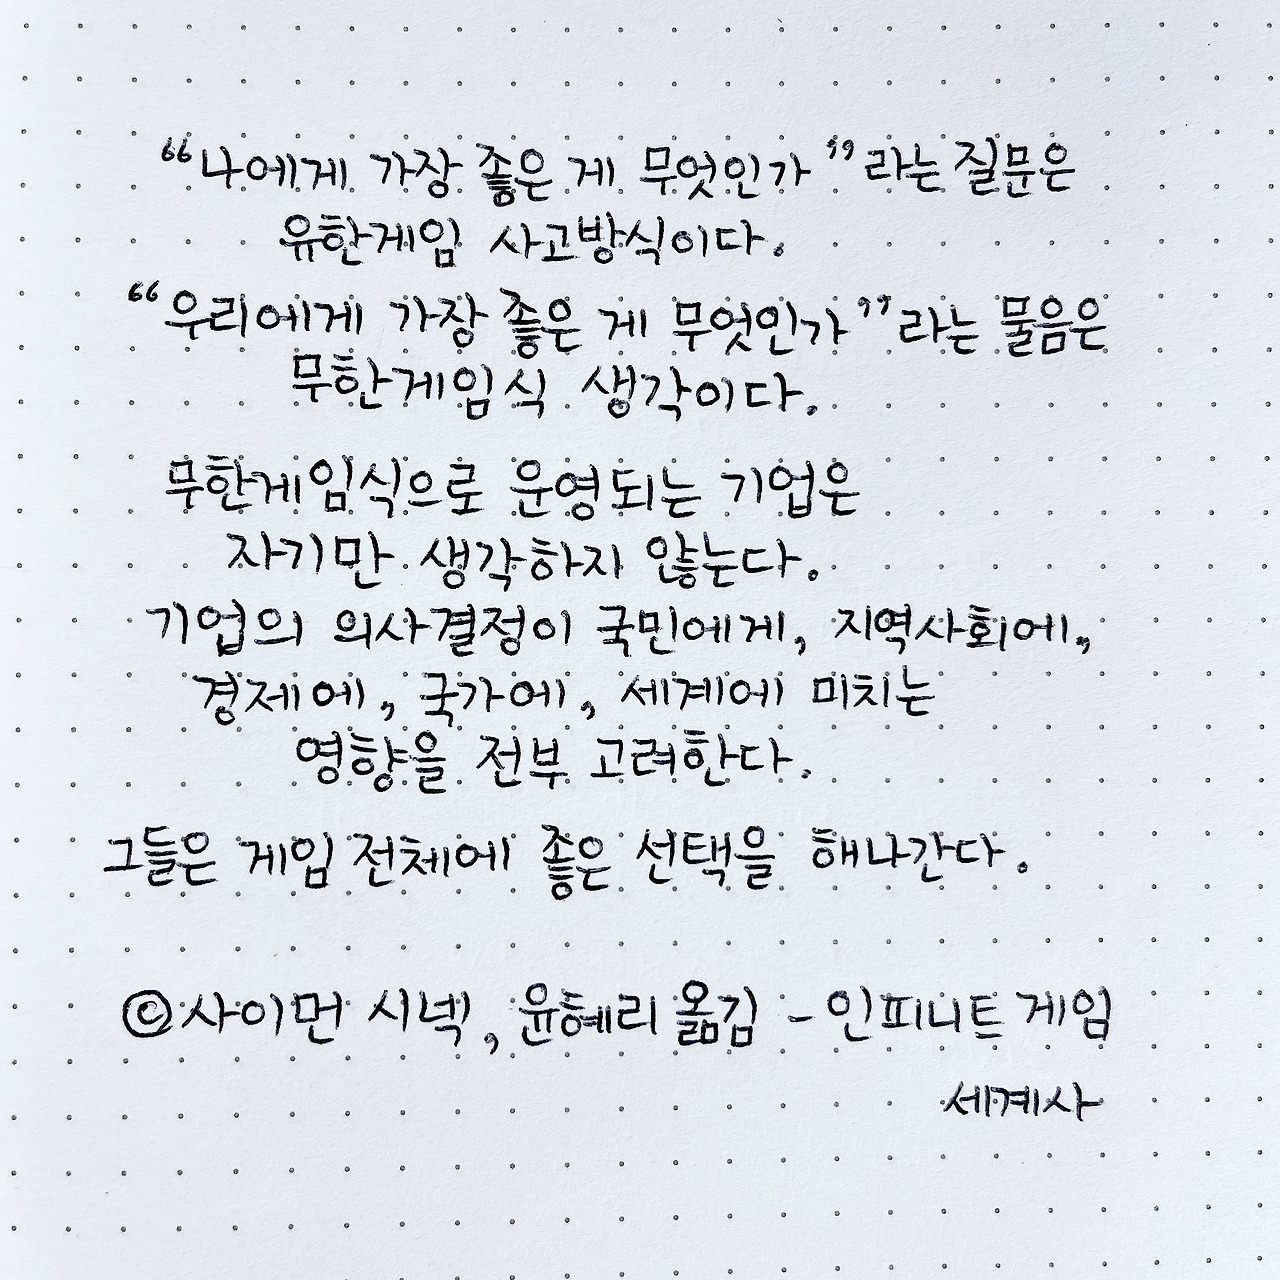 “나에게 가장 좋은 게 무엇인가”라는 질문은
유한게임 사고방식이다.
“우리에게 가장 좋은 게 무엇인가”라는 물음은
무한게임식 생각이다.
무한게임식으로 운영되는 기업은
자기만 생각하지 않는다.
기업의 의사결정이 국민에게, 지역사회에,
경제에, 국가에, 세계에 미치는
영향을 전부 고려한다.
그들은 게임 전체에 좋은 선택을 해나간다.
©사이먼 시넥, 윤혜리 옮김 - 인피니트 게임
세계사